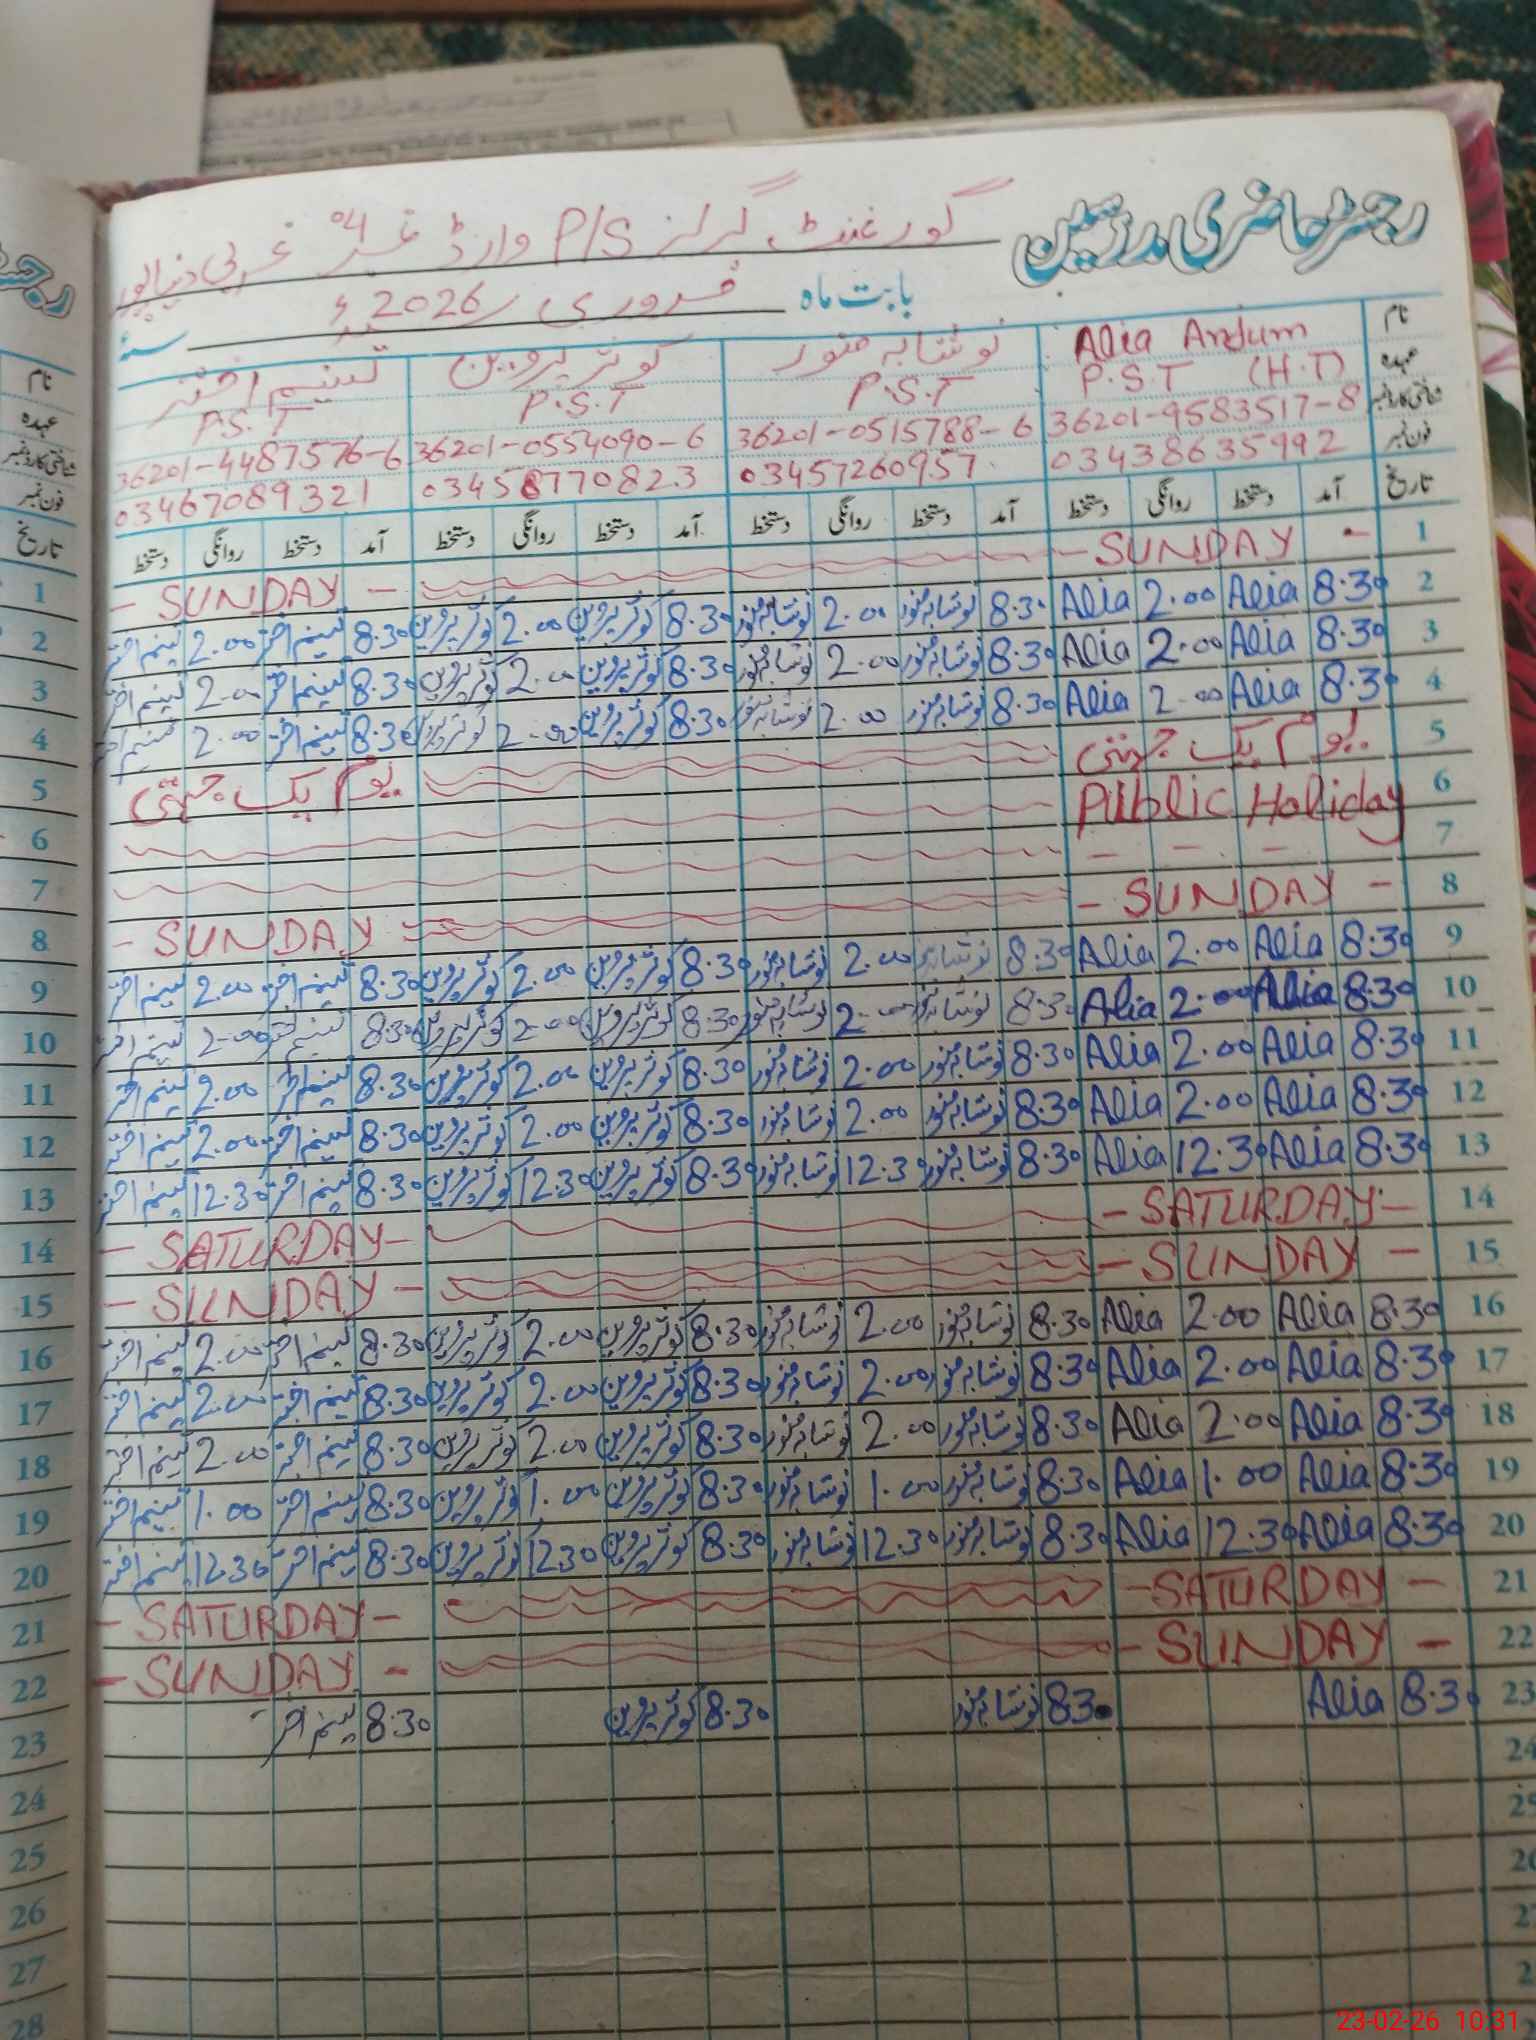 رجسٹر حاضری مدرسین گورنمنٹ گرلز P/S وارڈ نمبر 4 غربی دنیاپور
بابت ماہ فروری 2026ء سنہ
نام Alia Andum نوشابہ منور کوثر پروین تسنیم اختر
عہدہ P.S.T (H.T) P.S.T P.S.T P.S.T
شناختی کارڈ نمبر 36201-9583517-8 36201-0515788-6 36201-0554090-6 36201-4487576-6
فون نمبر 03438635992 03457260957 03458770823 03467089321
تاریخ آمد دستخط روانگی دستخط آمد دستخط روانگی دستخط آمد دستخط روانگی دستخط آمد دستخط روانگی دستخط
1 - SUNDAY - - SUNDAY -
2 8.30 Alia 2.00 Alia 8.30 نوشابہ منور 2.00 نوشابہ منور 8.30 کوثر پروین 2.00 کوثر پروین 8.30 تسنیم اختر 2.00 تسنیم اختر
3 8.30 Alia 2.00 Alia 8.30 نوشابہ منور 2.00 نوشابہ منور 8.30 کوثر پروین 2.00 کوثر پروین 8.30 تسنیم اختر 2.00 تسنیم اختر
4 8.30 Alia 2.00 Alia 8.30 نوشابہ منور 2.00 نوشابہ منور 8.30 کوثر پروین 2.00 کوثر پروین 8.30 تسنیم اختر 2.00 تسنیم اختر
5 یوم یک جہتی یوم یک جہتی
6 Public Holiday
7 - - -
8 - SUNDAY - - SUNDAY
9 8.30 Alia 2.00 Alia 8.30 نوشابہ 2.00 نوشابہ منور 8.30 کوثر پروین 2.00 کوثر پروین 8.30 تسنیم اختر 2.00 تسنیم اختر
10 8.30 Alia 2.00 Alia 8.30 نوشابہ منور 2.00 نوشابہ منور 8.30 کوثر پروین 2.00 کوثر پروین 8.30 تسنیم اختر 2.00 تسنیم اختر
11 8.30 Alia 2.00 Alia 8.30 نوشابہ منور 2.00 نوشابہ منور 8.30 کوثر پروین 2.00 کوثر پروین 8.30 تسنیم اختر 2.00 تسنیم اختر
12 8.30 Alia 2.00 Alia 8.30 نوشابہ منور 2.00 نوشابہ منور 8.30 کوثر پروین 2.00 کوثر پروین 8.30 تسنیم اختر 2.00 تسنیم اختر
13 8.30 Alia 12.30 Alia 8.30 نوشابہ منور 12.30 نوشابہ منور 8.30 کوثر پروین 12.30 کوثر پروین 8.30 تسنیم اختر 12.30 تسنیم اختر
14 - SATURDAY - - SATURDAY -
15 - SUNDAY - - SUNDAY -
16 8.30 Alia 2.00 Alia 8.30 نوشابہ منور 2.00 نوشابہ منور 8.30 کوثر پروین 2.00 کوثر پروین 8.30 تسنیم اختر 2.00 تسنیم اختر
17 8.30 Alia 2.00 Alia 8.30 نوشابہ منور 2.00 نوشابہ منور 8.30 کوثر پروین 2.00 کوثر پروین 8.30 تسنیم اختر 2.00 تسنیم اختر
18 8.30 Alia 2.00 Alia 8.30 نوشابہ منور 2.00 نوشابہ منور 8.30 کوثر پروین 2.00 کوثر پروین 8.30 تسنیم اختر 2.00 تسنیم اختر
19 8.30 Alia 1.00 Alia 8.30 نوشابہ منور 1.00 نوشابہ منور 8.30 کوثر پروین 1.00 کوثر پروین 8.30 تسنیم اختر 1.00 تسنیم اختر
20 8.30 Alia 12.30 Alia 8.30 نوشابہ منور 12.30 نوشابہ منور 8.30 کوثر پروین 1230 کوثر پروین 8.30 تسنیم اختر 12.30 تسنیم اختر
21 - SATURDAY - - SATURDAY -
22 - SUNDAY - - SUNDAY -
23 8.30 Alia 830 نوشابہ منور 8.30 کوثر پروین 8.30 تسنیم اختر
24
25
نام
عہدہ
شناختی کارڈ نمبر
فون نمبر
تاریخ
1
2
3
4
5
6
7
8
9
10
11
12
13
14
15
16
17
18
19
20
21
22
23
24
25
26
27
28
23-02-26 10:31